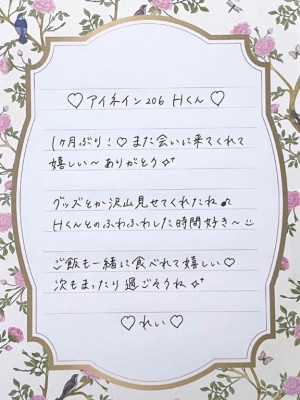 ♡アイネイン206 Hくん♡
1ヶ月ぶり！♡また会いに来てくれて
嬉しい〜ありがとう✧
グッズとか沢山見せてくれたね♪
Hくんとのふわふわした時間好き〜
ご飯も一緒に食べれて嬉しい♡
次もまったり過ごそうね✧
♡れい♡